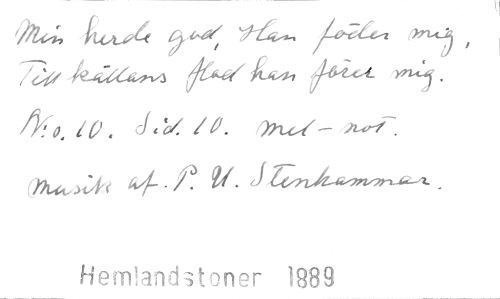 Min herde god, Han föder mig,
Till källans flod han förer mig.
No. 10. Sid. 10. mel-not.
musik af. P. U. Stenhammar.
Hemlandstoner 1889